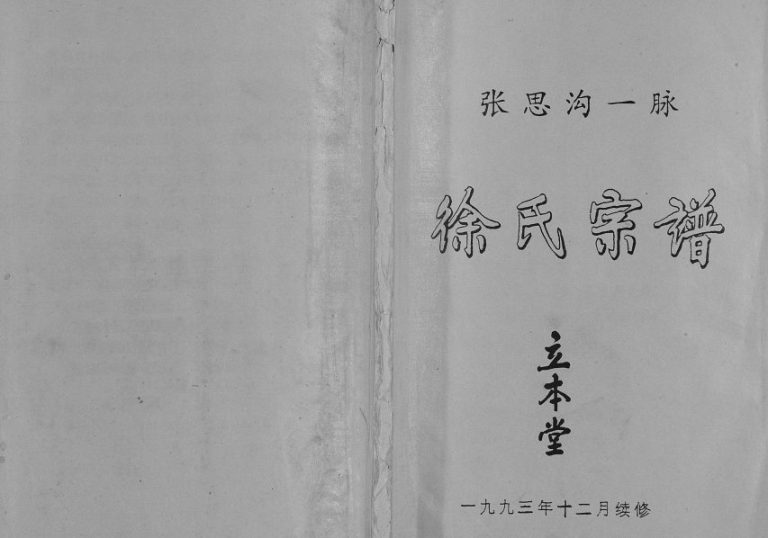 张思沟一脉
徐氏宗谱
立本堂
一九九三年十二月续修